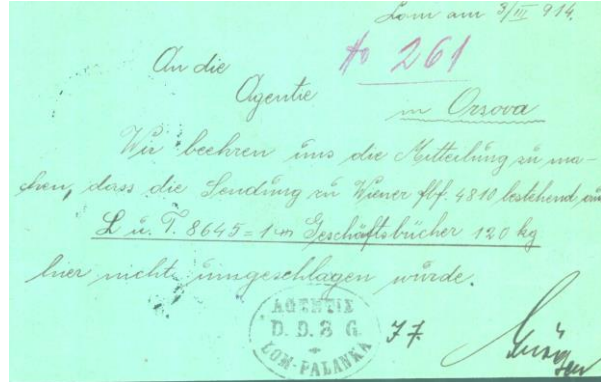 Lom am 3/III 914.
No 261
An die
Agentie
in Orsova
Wir beehren uns die Mitteilung zu ma-
chen, dass die Sendung zu Wiener 4810 bestehend aus
L u. T. 8645 = 1 Geschäftsbücher 120 kg
hier nicht umgeschlagen wurde.
AGENTIE
D. D. S. G.
LOM-PALANKA